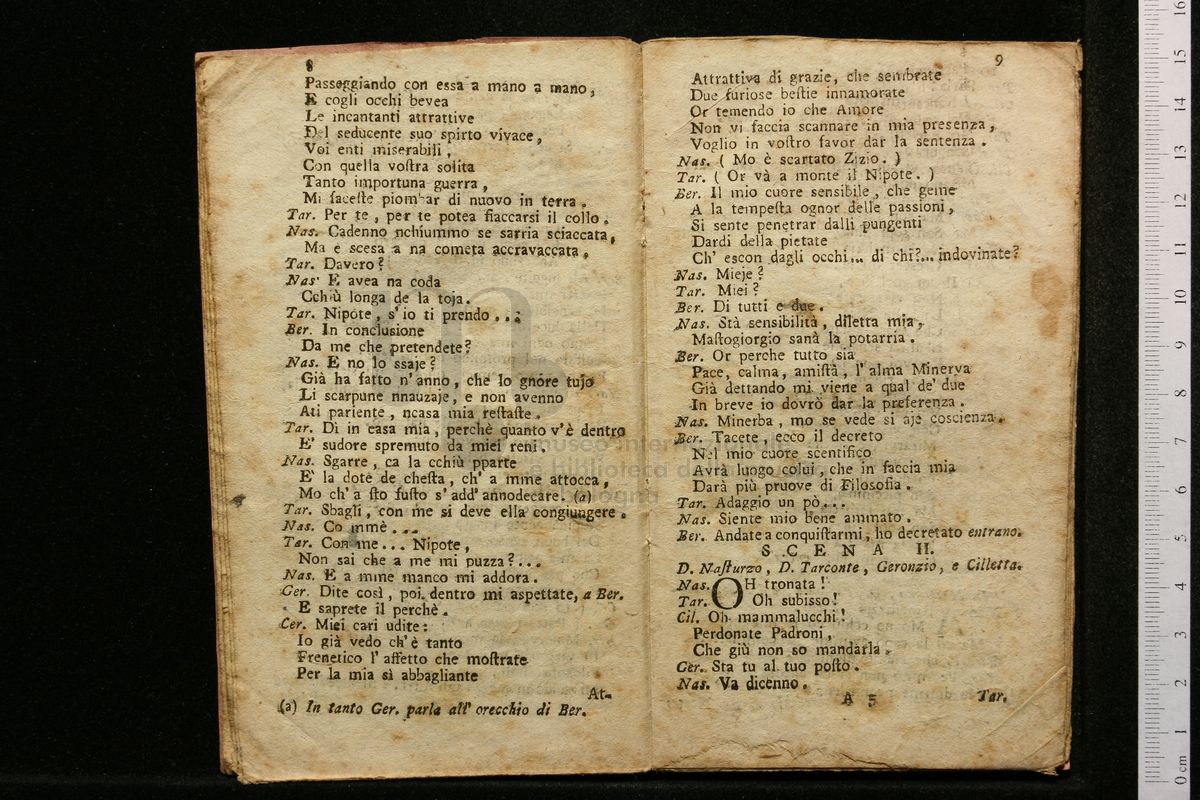 8
Passeggiando con essa a mano a mano,
E cogli occhi bevea
Le incantanti attrattive
Del seducente suo spirto vivace,
Voi enti miserabili,
Con quella voſtra solita
Tanto importuna guerra,
Mi faceſte piombar di nuovo in terra.
Tar. Per te, per te potea fiaccarsi il collo.
Nas. Cadenno nchiummo se sarria sciaccata,
Ma e scesa a na cometa accravaccata.
Tar. Davero?
Nas. E avea na coda
Cchiù longa de la toja.
Tar. Nipote, s' io ti prendo...
Ber. In conclusione
Da me che pretendete?
Nas. E no lo ssaje?
Già ha fatto n' anno, che lo gnore tujo
Li scarpune nnauzaje, e non avenno
Ati pariente, ncasa mia reſtaſte.
Tar. Di in casa mia, perchè quanto v' è dentro
E' sudore spremuto da miei reni.
Nas. Sgarre, ca la cchiù pparte
E' la dote de cheſta, ch' a mme attocca,
Mo ch' a ſto fuſto s' add' annodecare. (a)
Tar. Sbagli, con me si deve ella congiungere.
Nas. Co mmè...
Tar. Con me... Nipote,
Non sai che a me mi puzza?...
Nas. E a mme manco mi addora.
Ger. Dite così, poi dentro mi aspettate, a Ber.
E saprete il perchè.
Cer. Miei cari udite:
Io già vedo ch' è tanto
Frenetico l' affetto che moſtrate
Per la mia sì abbagliante
At-
(a) In tanto Ger. parla all' orecchio di Ber.
9
Attrattiva di grazie, che sembrate
Due furiose beſtie innamorate
Or temendo io che Amore
Non vi faccia scannare in mia presenza,
Voglio in voſtro favor dar la sentenza.
Nas. (Mo è scartato Zizio.)
Tar. (Or và a monte il Nipote.)
Ber. Il mio cuore sensibile, che geme
A la tempeſta ognor delle passioni,
Si sente penetrar dalli pungenti
Dardi della pietate
Ch' escon dagli occhi... di chi?... indovinate?
Nas. Mieje?
Tar. Miei?
Ber. Di tutti e due.
Nas. Stà sensibilità, diletta mia,
Maſtogiorgio sanà la potarria.
Ber. Or perche tutto sia
Pace, calma, amiſtà, l' alma Minerva
Già dettando mi viene a qual de' due
In breve io dovrò dar la preferenza.
Nas. Minerba, mo se vede si aje coscienza.
Ber. Tacete, ecco il decreto
Nel mio cuore scentifico
Avrà luogo colui, che in faccia mia
Darà più pruove di Filosofia.
Tar. Adaggio un pò...
Nas. Siente mio bene ammato.
Ber. Andate a conquiſtarmi, ho decretato entrano.
SCENA II.
D. Naſturzo, D. Tarconte, Geronzio, e Cilletta.
Nas. OH tronata!
Tar. Oh subisso!
Cil. Oh mammalucchi!
Perdonate Padroni,
Che giù non so mandarla.
Ger. Sta tu al tuo poſto.
Nas. Va dicenno.
A 5
Tar.